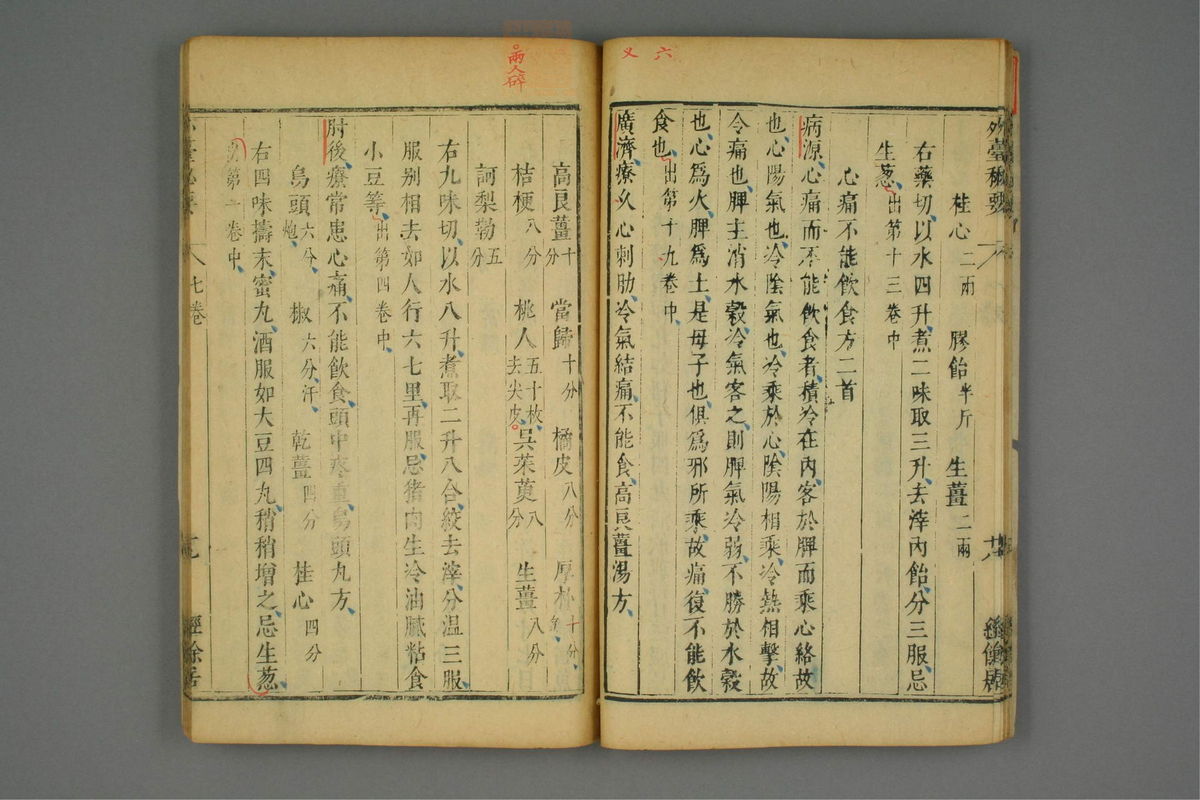 外臺秘要
六 又
桂心二兩 膠飴半斤 生薑二兩
右藥切以水四升煮二味取三升去滓内飴分三服忌
生葱出第十三卷中
心痛不能飲食方二首
病源心痛而不能飲食者積冷在内客於脾而乘心絡故
也心陽氣也冷陰氣也冷乘於心陰陽相乘冷熱相擊故
令痛也脾主消水穀冷氣客之則脾氣冷弱不勝於水穀
也心爲火脾爲土是母子也俱爲邪所乘故痛復不能飲
食也出第十九卷中
廣濟療久心刺肋冷氣結痛不能食高良薑湯方
兩人碎
高良薑十分 當歸十分 橘皮八分 厚朴十分
桔梗八分 桃人五十枚去尖皮 吳茱萸八分 生薑八分
訶梨勒五分
右九味切以水八升煮取二升八合絞去滓分温三服
服别相去如人行六七里再服忌猪肉生冷油膩粘食
小豆等出第四卷中
肘後療常患心痛不能飲食頭中疼重烏頭丸方
烏頭六分炮 椒六分汗 乾薑四分 桂心四分
右四味擣末蜜丸酒服如大豆四丸稍稍增之忌生葱
第一卷中
七卷
經餘居